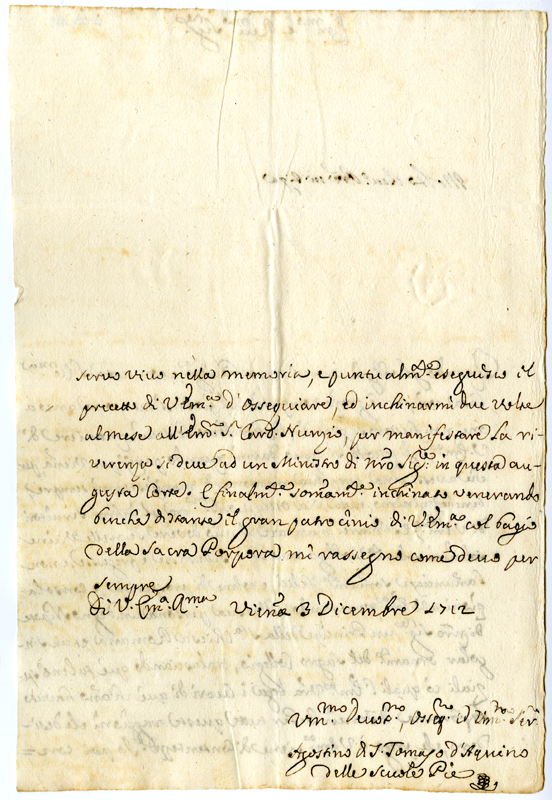 servo vivo nella memoria, e puntualm.te eseguisco il
precetto di V. Em.a d'ossequiare, ed inchinarmi due volte
al mese all'Em.o S. Card. Nunzio, per manifestare la ri-
verenza si deve ad un Ministro di N.ro Sig.e in questa au-
gusta Corte. E finalm.te somam.te inchinato venerando
benche distante il gran patrocinio di V. Em.a col bagio
della Sacra Porpora mi rassegno come devo per
sempre
Di V. Em.a A.ma Viena 3 Dicembre 1712
Um.mo Devot.mo, Osseq.mo ed Um.mo Ser.
Agostino di S. Tomaso d'Aquino
delle Scuole Pie